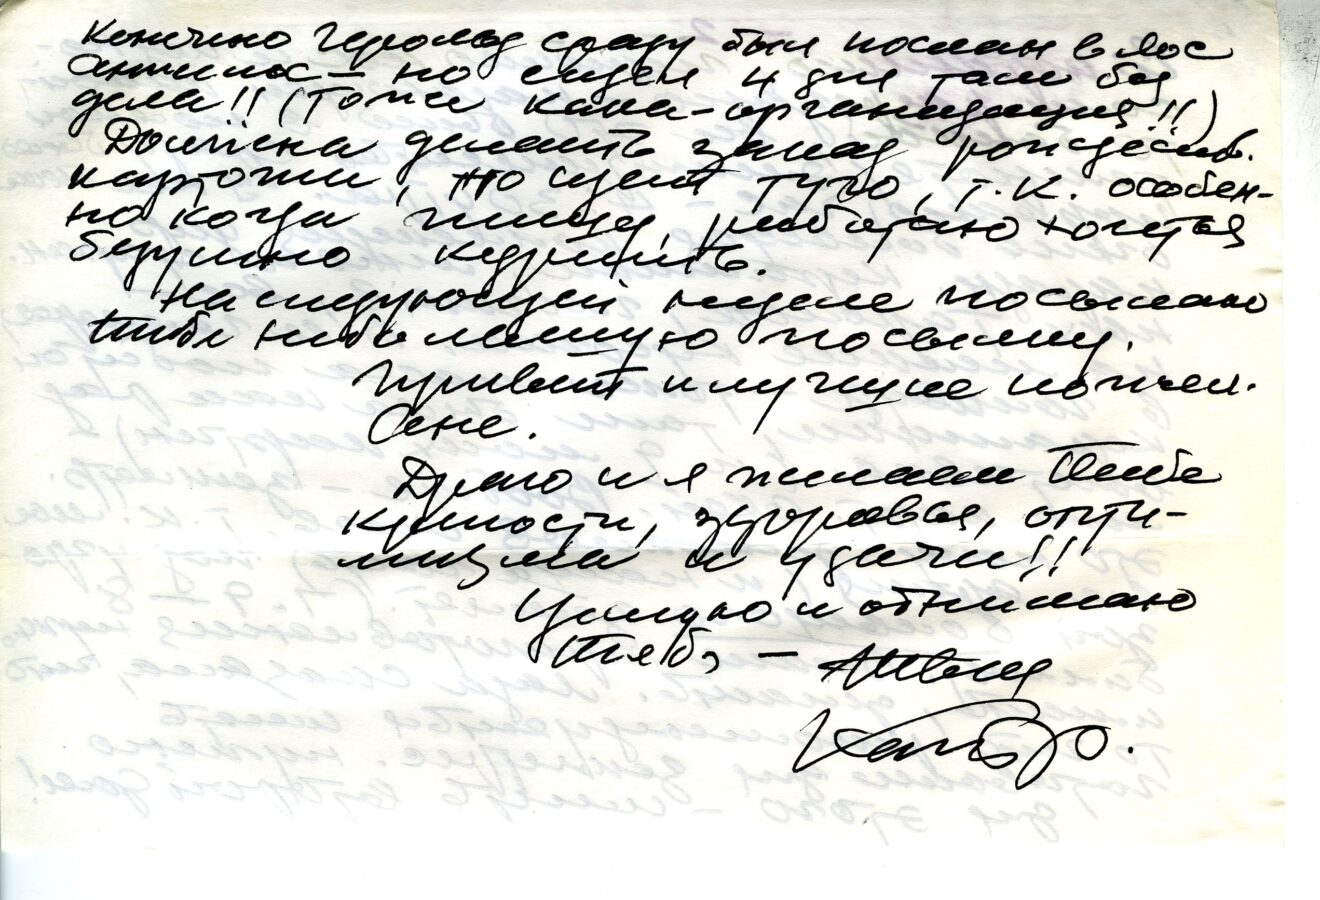 Конечно Герольд сразу был послан в Лос
Анжилос – но сидел 4 дня там без
дела!! (Тоже кака-организация!!)
Должна делать заказ рождеств.
карточки, но идет туго, т.к. особен-
но когда пишу, работаю хочется
безумно курить.
На следующей неделе посылаю
Тебе небольшую посылку.
Привет и лучшие пожел.
Лене.
Драго и я желаем Тебе
крепости, здоровья, опти-
мизма и удачи!!
Целую и обнимаю
Тебя – Твоя